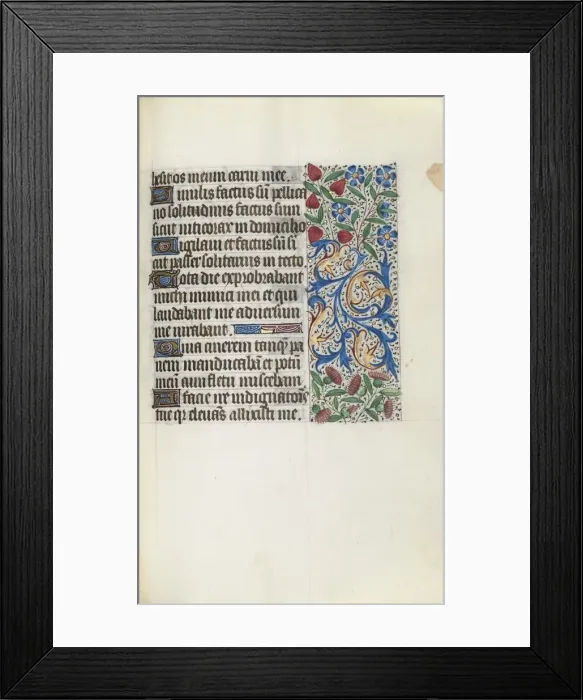 hesit os meum carni mee.
Similis factus sū pellica
no solitudinis factus sum
sicut niticorax in domicilio
Vigilaui et factus sū si
cut passer solitarius in tecto.
Tota die exprobrabant
michi inimici mei et qui
laudabant me aduersum
me iurabant.
Quia cinerem tanq̄ pa
nem manducabā et potū
meū cum fletu miscebam
A facie ire indignatiōis
me qr eleuās allisisti me.